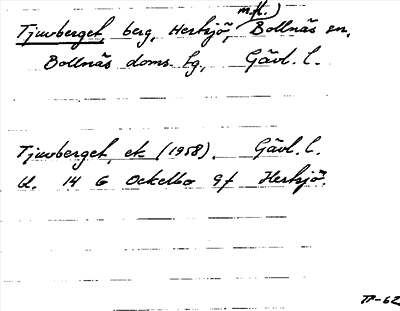 m.fl.)
Tjuvberget, berg, Hertsjö, Bollnäs sn,
Bollnäs doms. lg., Gävl. l.
Tjuvberget, ek (1958). Gävl. l.
Bl. 14 G Ockelbo 9f Hertsjö.
TP-62